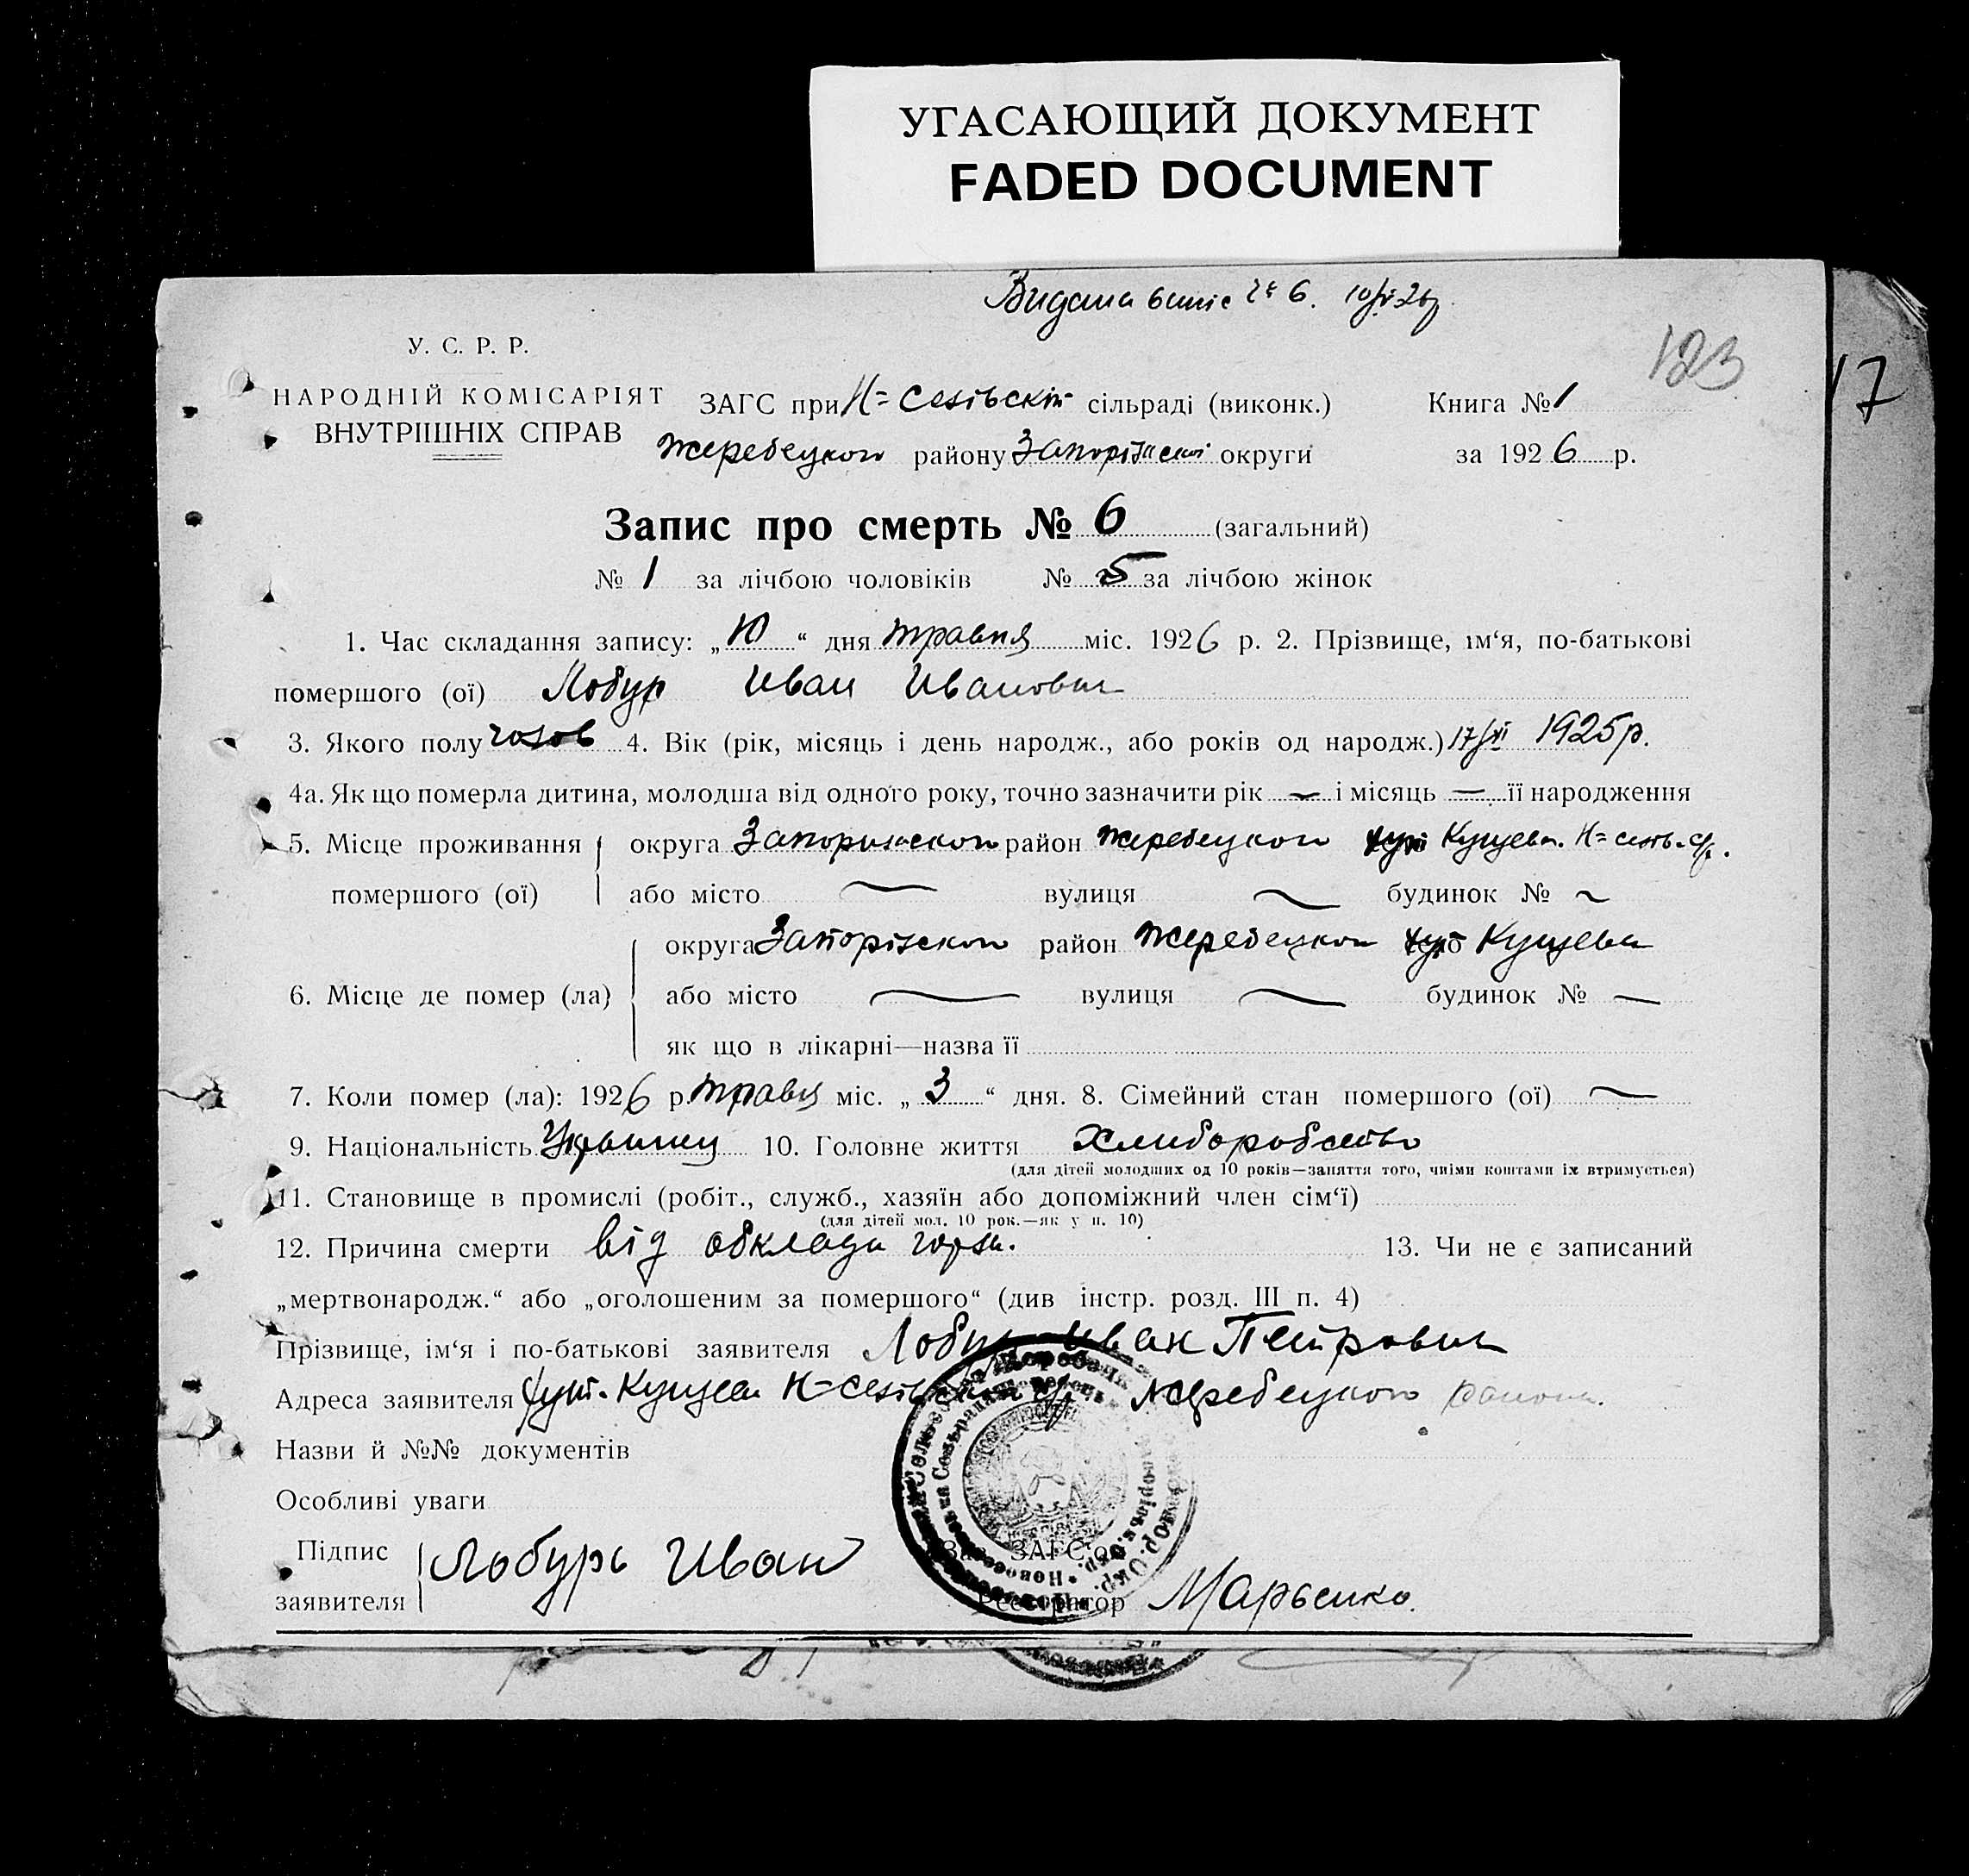 УГАСАЮЩИЙ ДОКУМЕНТ
FADED DOCUMENT
Видана випіс № 6. 10/V-26р
123
17
У. С. Р. Р.
НАРОДНІЙ КОМІСАРІЯТ
ВНУТРІШНІХ СПРАВ
ЗАГС при Н=Сезівскій сільраді (виконк.) Книга № 1
Жеребецкого району Запоріжскої округи за 1926 р.
Запис про смерть № 6 (загальний)
№ 1 за лічбою чоловіків № 5 за лічбою жінок
1. Час складання запису: „10“ дня травня міс. 1926 р. 2. Прізвище, ім‘я, по-батькові
помершого (ої) Лобур Иван Иванович
3. Якого полу чолов 4. Вік (рік, місяць і день народж., або років од народж.) 17/XI 1925р.
4а. Як що померла дитина, молодша від одного року, точно зазначити рік — і місяць — її народження
5. Місце проживання округа Запорижскои район Жеребецкого хут Кущеви. Н=
помершого (ої) або місто — вулиця — будинок № —
округа Запоріжскои район Жеребецкои хут Кущеви
6. Місце де помер (ла) або місто — вулиця — будинок № —
як що в лікарні—назва її
7. Коли помер (ла): 1926 р. травня міс. „3“ дня. 8. Сімейний стан помершого (ої) —
9. Національність Украинец 10. Головне життя Хлиборобство
(для дітей молодших од 10 років—заняття того, чиїми коштами їх втримується)
11. Становище в промислі (робіт., служб., хазяїн або допоміжний член сім‘ї)
(для дітей мол. 10 рок.—як у п. 10)
12. Причина смерти від обклади горла. 13. Чи не є записаний
„мертвонародж.“ або „оголошеним за помершого“ (див інстр. розд. III п. 4)
Прізвище, ім‘я і по-батькові заявителя Лобур Иван Петрович
Адреса заявителя хут. Кущеви Н= Жеребецкого района.
Назви й №№ документів
Особливі уваги
Підпис
заявителя Лобурь Иван
Зав. ЗАГС‘ом
Реєстратор Марченко.